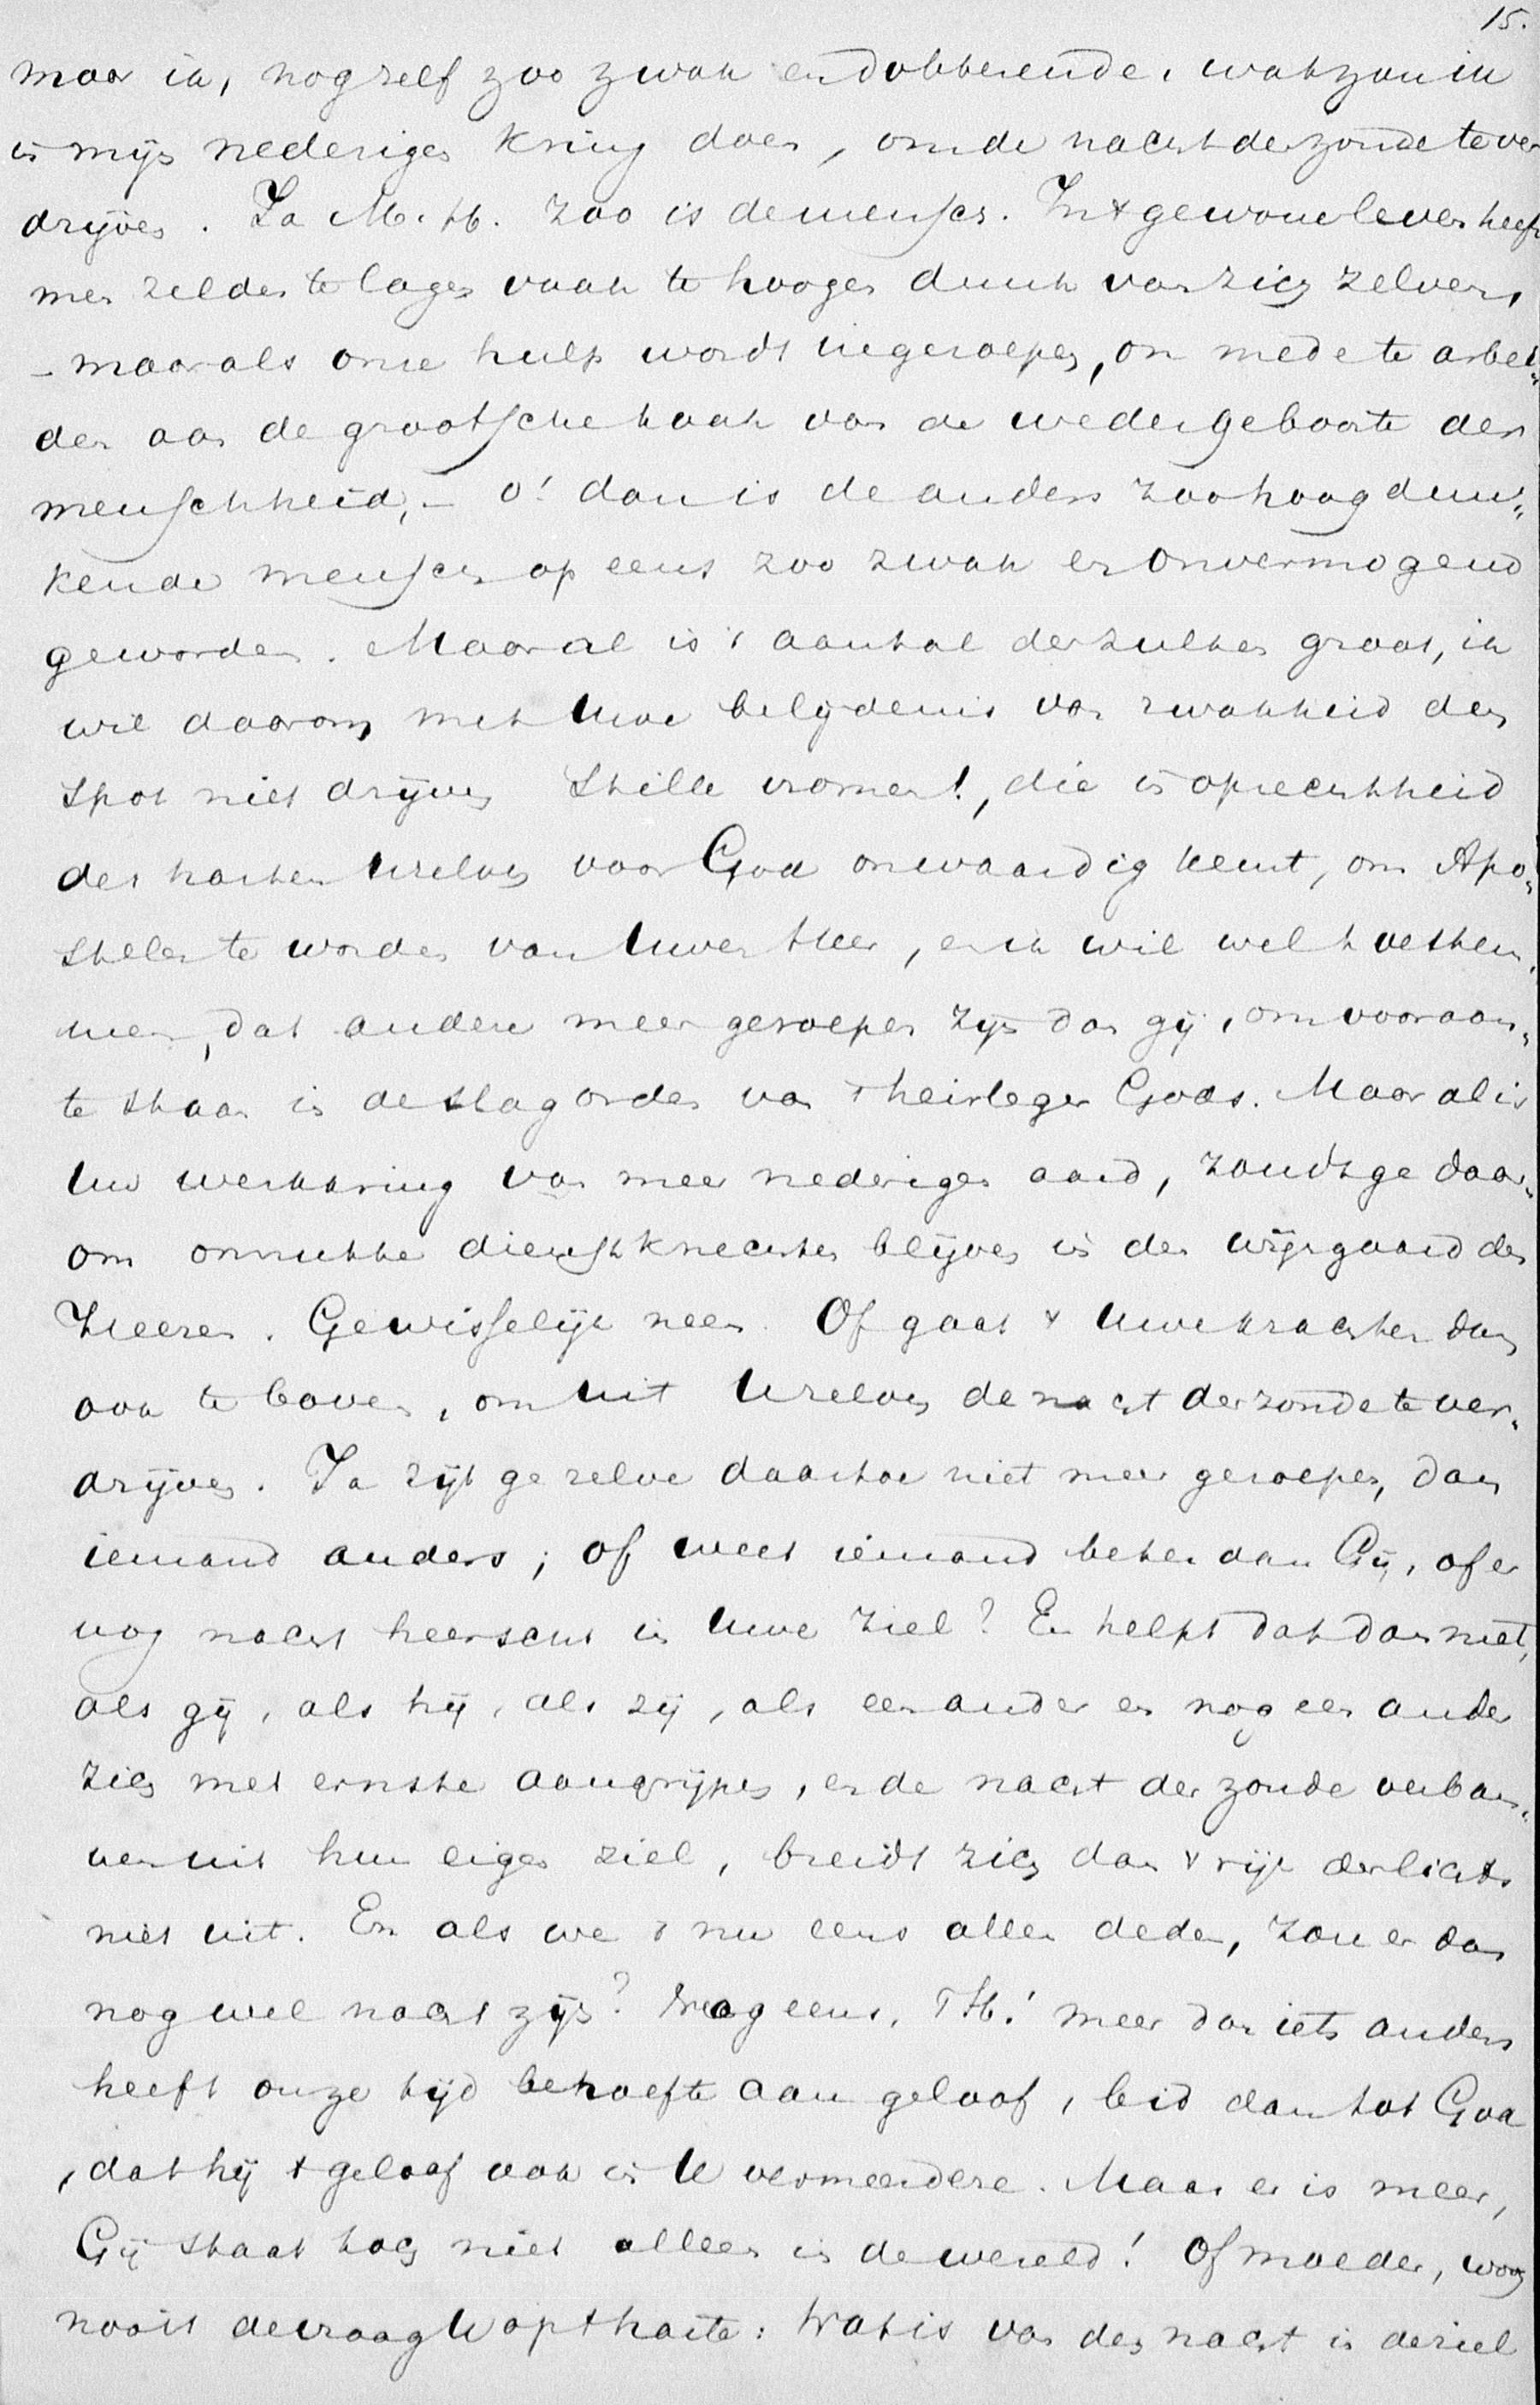 15.
maar ik, nog zelf zoo zwak en dobberende, wat zou ik
in mijn nederigen kring doen, om de nacht der zonde te ver
drijven. Ja M. H. zoo is de mensch. In 't gewone leven heeft
men zelden te lagen vaak te hoogen dunk van zich zelven,
- maar als onze hulp wordt ingeroepen, om mede te arbei„
den aan de grootsche taak van de wedergeboorte der
menschheid, - o! dan is de anders zoo hoog dun„
kende mensch op eens zoo zwak en onvermogend
geworden. Maar al is 't aantal der zulken groot, ik
wil daarom met Uwe belijdenis van zwakheid den
spot niet drijven Stille vromen!, die in oprechtheid
des harten Uzelven voor God onwaardig kent, om Apo„
stelen te worden van Uwen Heer, en ik wil wel toestem„
men, dat andere meer geroepen zijn dan gij, om vooraan„
te staan in de slagorden van 't heirleger Gods. Maar al is
Uw werkkring van meer nederigen aard, zoudt ge daar„
om onnutte dienstknechten blijven in den wijngaard des
Heeren. Gewisselijk neen. Of gaat 't Uwe krachten dan
ook te boven, om uit Uzelven de nacht der zonde te ver„
drijven. Ja zijt ge zelve daartoe niet meer geroepen, dan
iemand anders; of weet iemand beter dan Gij, of er
nog nacht heerscht in Uwe ziel? En helpt dat dan niet,
als gij, als hij, als zij, als een ander en nog een ander
zich met ernste aangrijpen, en de nacht der zonde verban„
nen uit hun eigen ziel, breidt zich dan 't rijk des lichts
niet uit. En als we 't nu eens allen deden, zou er dan
nog wel nacht zijn? Nog eens, T H.! meer dan iets anders
heeft onze tijd behoefte aan geloof, bid dan tot God
, dat hij 't geloof ook in U vermeerdere. Maar er is meer,
Gij staat toch niet alleen in de wereld! Of moeder, woog
nooit de vraag U op 't harte: Wat is van den nacht in de ziel